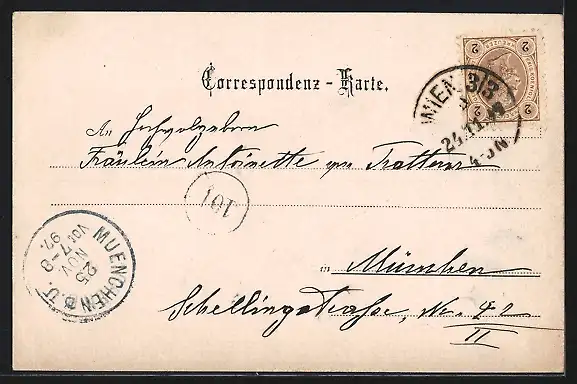 Correspondenz-Karte.
2 2
2 2
WIEN 3/3
24.11.97
4-5N
An Hochwolgeborn
Fräulein Antoinette von Trattner
101
MUENCHEN B.U.
25
NOV
Vor 7-8
97
in München
Schellingstrasse, Nr. 42
II